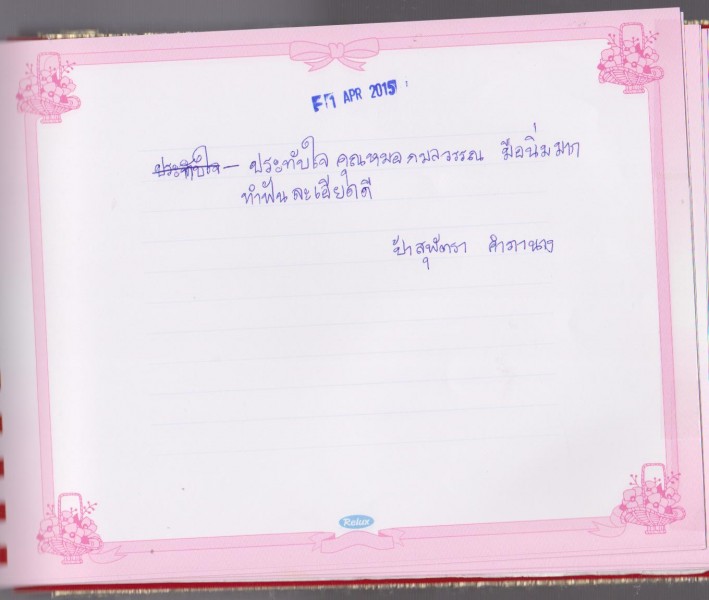 1 APR 2015
ประทับใจ - ประทับใจ คุณหมอ กมลวรรณ มือนิ่มมาก
ทำฟันละเอียดดี
ป้าสุพัตรา
Relux